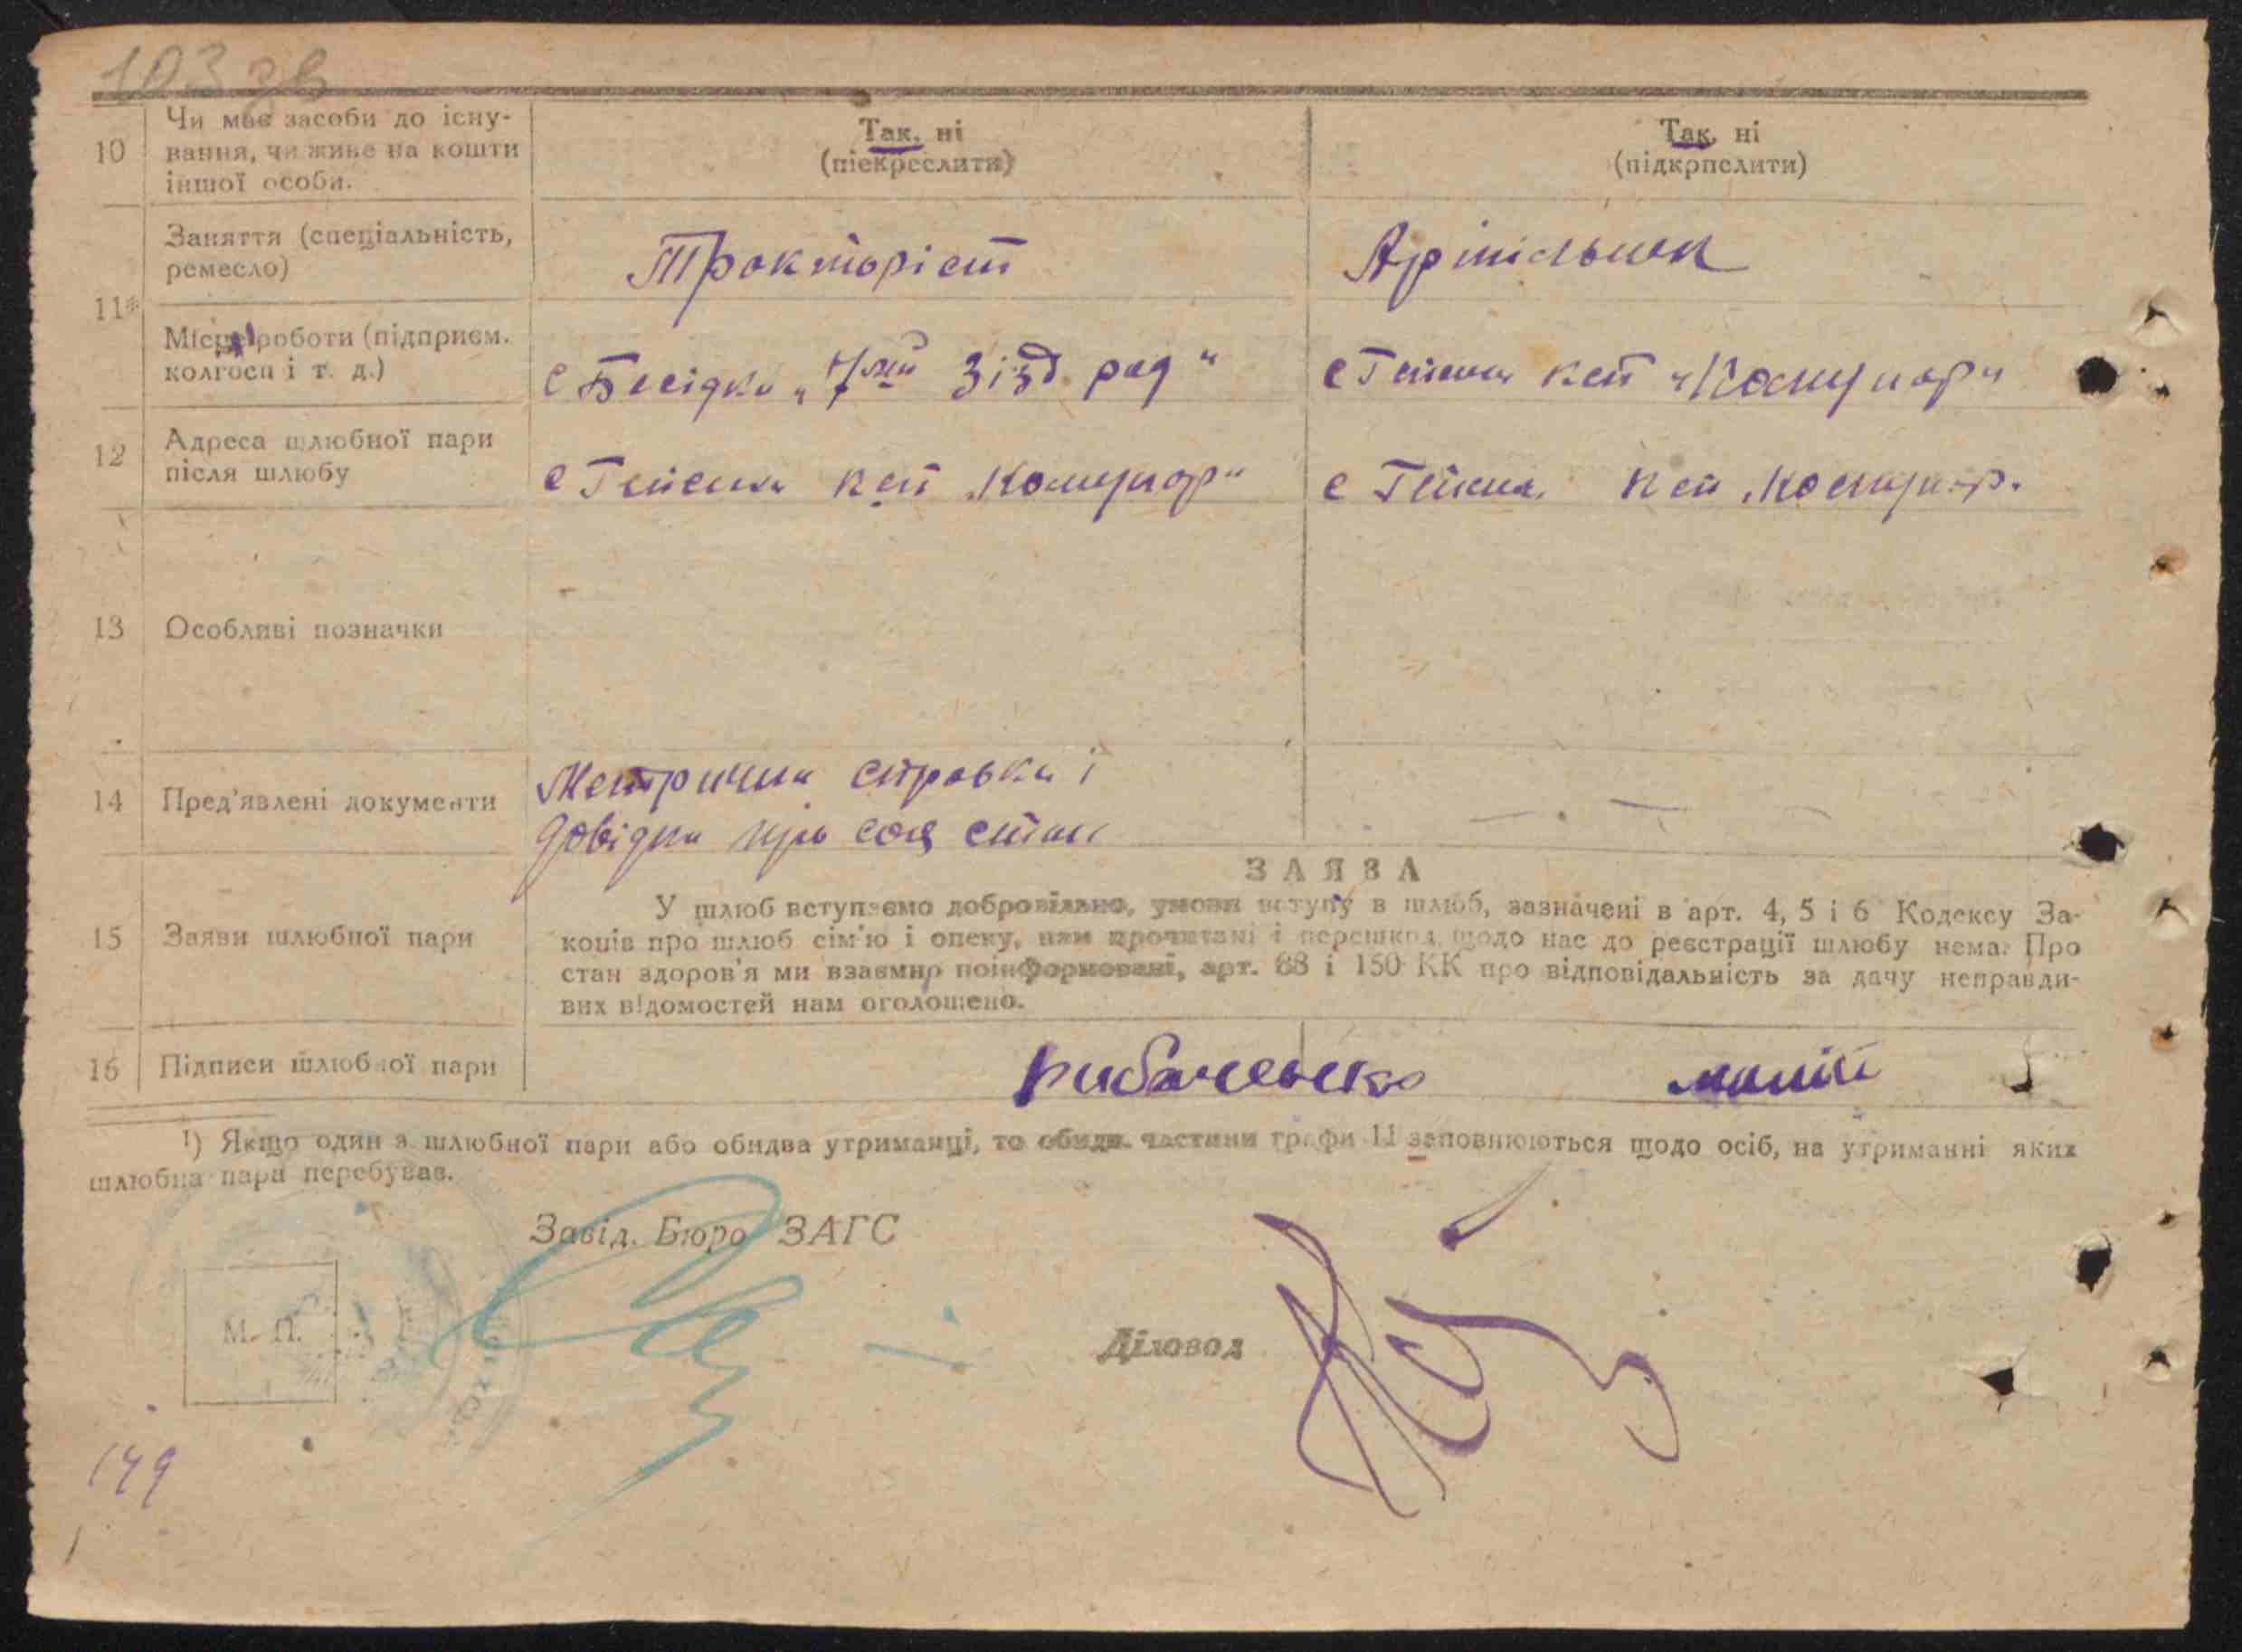 103 зв
10 Чи має засоби до існу-
вання, чи живе на кошти
іншої особи.
Так, ні
(піекреслити)
Так, ні
(підкрпслити)
11*
Заняття (спеціальність,
ремесло)
Тракторіст
Артільник
Місце роботи (підприєм.
колгосп і т. д.)
с Бесідка „7мий Зізд рад“
с Гейсиха ксп „Комунар“
12 Адреса шлюбної пари
після шлюбу
с Гейсиха ксп „Комунар“
с Гейсиха ксп „Комунар.
13 Особливі позначки
14 Пред'явлені документи
Метрична справка і
довідка про соц стан
ЗАЯВА
15 Заяви шлюбної пари
У шлюб вступаємо добровільно, умови вступу в шлюб, зазначені в арт. 4, 5 і 6 Кодексу За-
конів про шлюб сім'ю і опеку, нам прочитані і перешкод щодо нас до реєстрації шлюбу нема. Про
стан здоров'я ми взаємно поінформовані, арт. 88 і 150 КК про відповідальність за дачу неправди-
вих відомостей нам оголошено.
16 Підписи шлюбної пари
Рибаченько
1) Якщо один з шлюбної пари або обидва утриманці, то обидв. частини графи 11 заповнюються щодо осіб, на утриманні яких
шлюбна пара перебуває.
Завід. Бюро ЗАГС
М. П.
Діловод
149